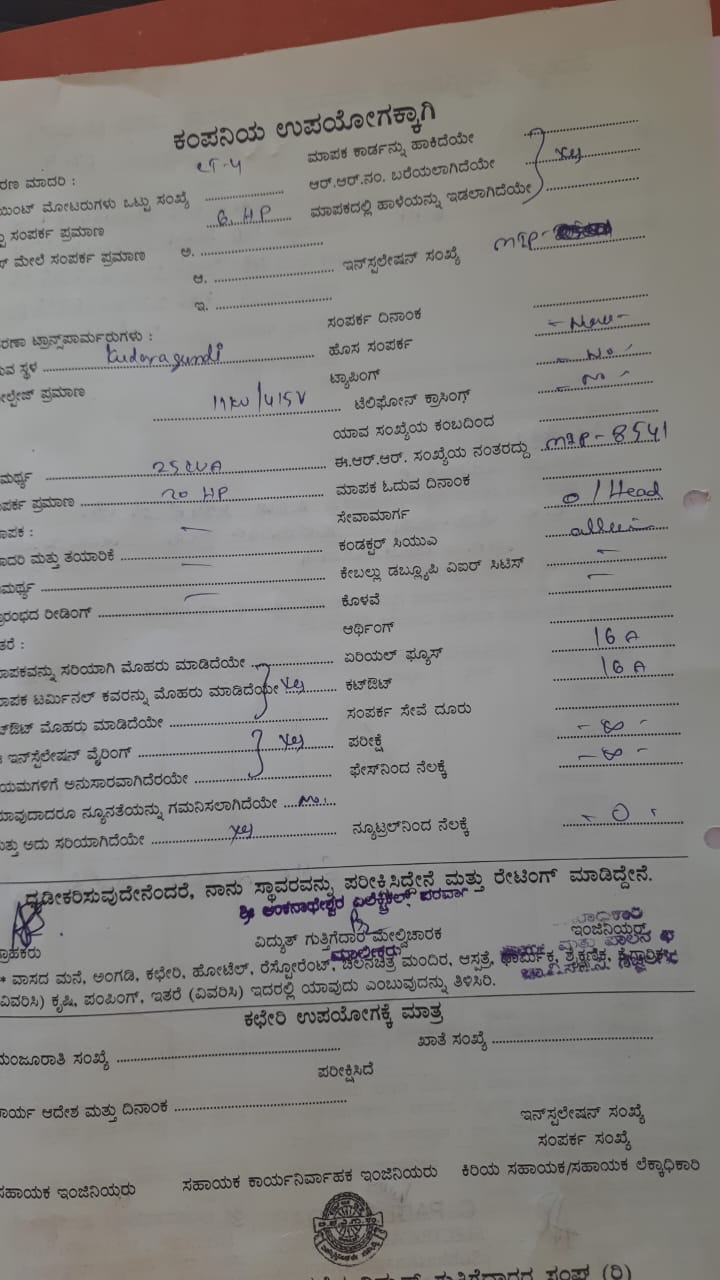 ಕಂಪನಿಯ ಉಪಯೋಗಕ್ಕಾಗಿ
ರಣ ಮಾದರಿ : LT-4 ಮಾಪಕ ಕಾರ್ಡನ್ನು ಹಾಕಿದೆಯೇ
ಯಿಂಟ್ ಮೋಟರುಗಳು ಒಟ್ಟು ಸಂಖ್ಯೆ ಆರ್.ಆರ್.ನಂ. ಬರೆಯಲಾಗಿದೆಯೇ Yes
ಸಂಪರ್ಕ ಪ್ರಮಾಣ 6 HP ಮಾಪಕದಲ್ಲಿ ಹಾಳೆಯನ್ನು ಇಡಲಾಗಿದೆಯೇ
ಮೇಲೆ ಸಂಪರ್ಕ ಪ್ರಮಾಣ ಅ.
ಆ. ಇನ್‌ಸ್ಪಲೇಷನ್ ಸಂಖ್ಯೆ MIP-
ಇ.
ರಣಾ ಟ್ರಾನ್ಸ್‌ಪಾರ್ಮರುಗಳು : ಸಂಪರ್ಕ ದಿನಾಂಕ
ುವ ಸ್ಥಳ Kudaragundi ಹೊಸ ಸಂಪರ್ಕ - New -
ೋಲ್ಟೇಜ್ ಪ್ರಮಾಣ 11KV/415V ಟ್ಯಾಪಿಂಗ್ - No -
ಟೆಲಿಫೋನ್ ಕ್ರಾಸಿಂಗ್ - No -
ಯಾವ ಸಂಖ್ಯೆಯ ಕಂಬದಿಂದ
ಮರ್ಥ್ಯ 25 KVA ಈ.ಆರ್.ಆರ್. ಸಂಖ್ಯೆಯ ನಂತರದ್ದು MIP-8541
ಂಪರ್ಕ ಪ್ರಮಾಣ 20 HP ಮಾಪಕ ಓದುವ ದಿನಾಂಕ
ಾಪಕ : ಸೇವಾಮಾರ್ಗ o/Head
ಾದರಿ ಮತ್ತು ತಯಾರಿಕೆ ಕಂಡಕ್ಟರ್ ಸಿಯುಎ
ಮರ್ಥ್ಯ ಕೇಬಲ್ಲು ಡಬ್ಲ್ಯೂಪಿ ಎಐರ್ ಸಿಟಿಸ್
್ರಾರಂಭದ ರೀಡಿಂಗ್ ಕೊಳವೆ
ತರೆ : ಆರ್ಥಿಂಗ್
ಾಪಕವನ್ನು ಸರಿಯಾಗಿ ಮೊಹರು ಮಾಡಿದೆಯೇ ಏರಿಯಲ್ ಫ್ಯೂಸ್ 16 A
ಾಪಕ ಟರ್ಮಿನಲ್ ಕವರನ್ನು ಮೊಹರು ಮಾಡಿದೆಯೇ Yes ಕಟ್‌ಔಟ್ 16 A
ಟ್‌ಔಟ್ ಮೊಹರು ಮಾಡಿದೆಯೇ ಸಂಪರ್ಕ ಸೇವೆ ದೂರು
ಇನ್‌ಸ್ಪಲೇಷನ್ ವೈರಿಂಗ್ Yes ಪರೀಕ್ಷೆ - ∞ -
ಯಮಗಳಿಗೆ ಅನುಸಾರವಾಗಿದೆರಯೇ ಫೇಸ್‌ನಿಂದ ನೆಲಕ್ಕೆ - ∞ -
ಯಾವುದಾದರೂ ನ್ಯೂನತೆಯನ್ನು ಗಮನಿಸಲಾಗಿದೆಯೇ No.
ುತ್ತು ಅದು ಸರಿಯಾಗಿದೆಯೇ Yes ನ್ಯೂಟ್ರಲ್‌ನಿಂದ ನೆಲಕ್ಕೆ - 0 -
ದೃಢೀಕರಿಸುವುದೇನೆಂದರೆ, ನಾನು ಸ್ಥಾವರವನ್ನು ಪರೀಕ್ಷಿಸಿದ್ದೇನೆ ಮತ್ತು ರೇಟಿಂಗ್ ಮಾಡಿದ್ದೇನೆ.
ಶ್ರೀ ಅಂಕನಾಥೇಶ್ವರ ಎಲೆಕ್ಟ್ರಿಕಲ್
್ರಾಹಕರು ವಿದ್ಯುತ್ ಗುತ್ತಿಗೆದಾರ ಮೇಲ್ವಿಚಾರಕ ಇಂಜಿನಿಯರ್
ಮಾಲೀಕರು
* ವಾಸದ ಮನೆ, ಅಂಗಡಿ, ಕಛೇರಿ, ಹೋಟೆಲ್, ರೆಸ್ಟೋರೆಂಟ್, ಚಲನಚಿತ್ರ ಮಂದಿರ, ಆಸ್ಪತ್ರೆ, ಧಾರ್ಮಿಕ, ಶೈಕ್ಷಣಿಕ, ಕೈಗಾರಿಕೆ
ವಿವರಿಸಿ) ಕೃಷಿ, ಪಂಪಿಂಗ್, ಇತರೆ (ವಿವರಿಸಿ) ಇದರಲ್ಲಿ ಯಾವುದು ಎಂಬುವುದನ್ನು ತಿಳಿಸಿರಿ.
ಕಛೇರಿ ಉಪಯೋಗಕ್ಕೆ ಮಾತ್ರ
ಮಂಜೂರಾತಿ ಸಂಖ್ಯೆ ಖಾತೆ ಸಂಖ್ಯೆ
ಪರೀಕ್ಷಿಸಿದೆ
ಾರ್ಯ ಆದೇಶ ಮತ್ತು ದಿನಾಂಕ
ಇನ್‌ಸ್ಪಲೇಷನ್ ಸಂಖ್ಯೆ
ಸಂಪರ್ಕ ಸಂಖ್ಯೆ
ಸಹಾಯಕ ಇಂಜಿನಿಯರು ಸಹಾಯಕ ಕಾರ್ಯನಿರ್ವಾಹಕ ಇಂಜಿನಿಯರು ಕಿರಿಯ ಸಹಾಯಕ/ಸಹಾಯಕ ಲೆಕ್ಕಾಧಿಕಾರಿ